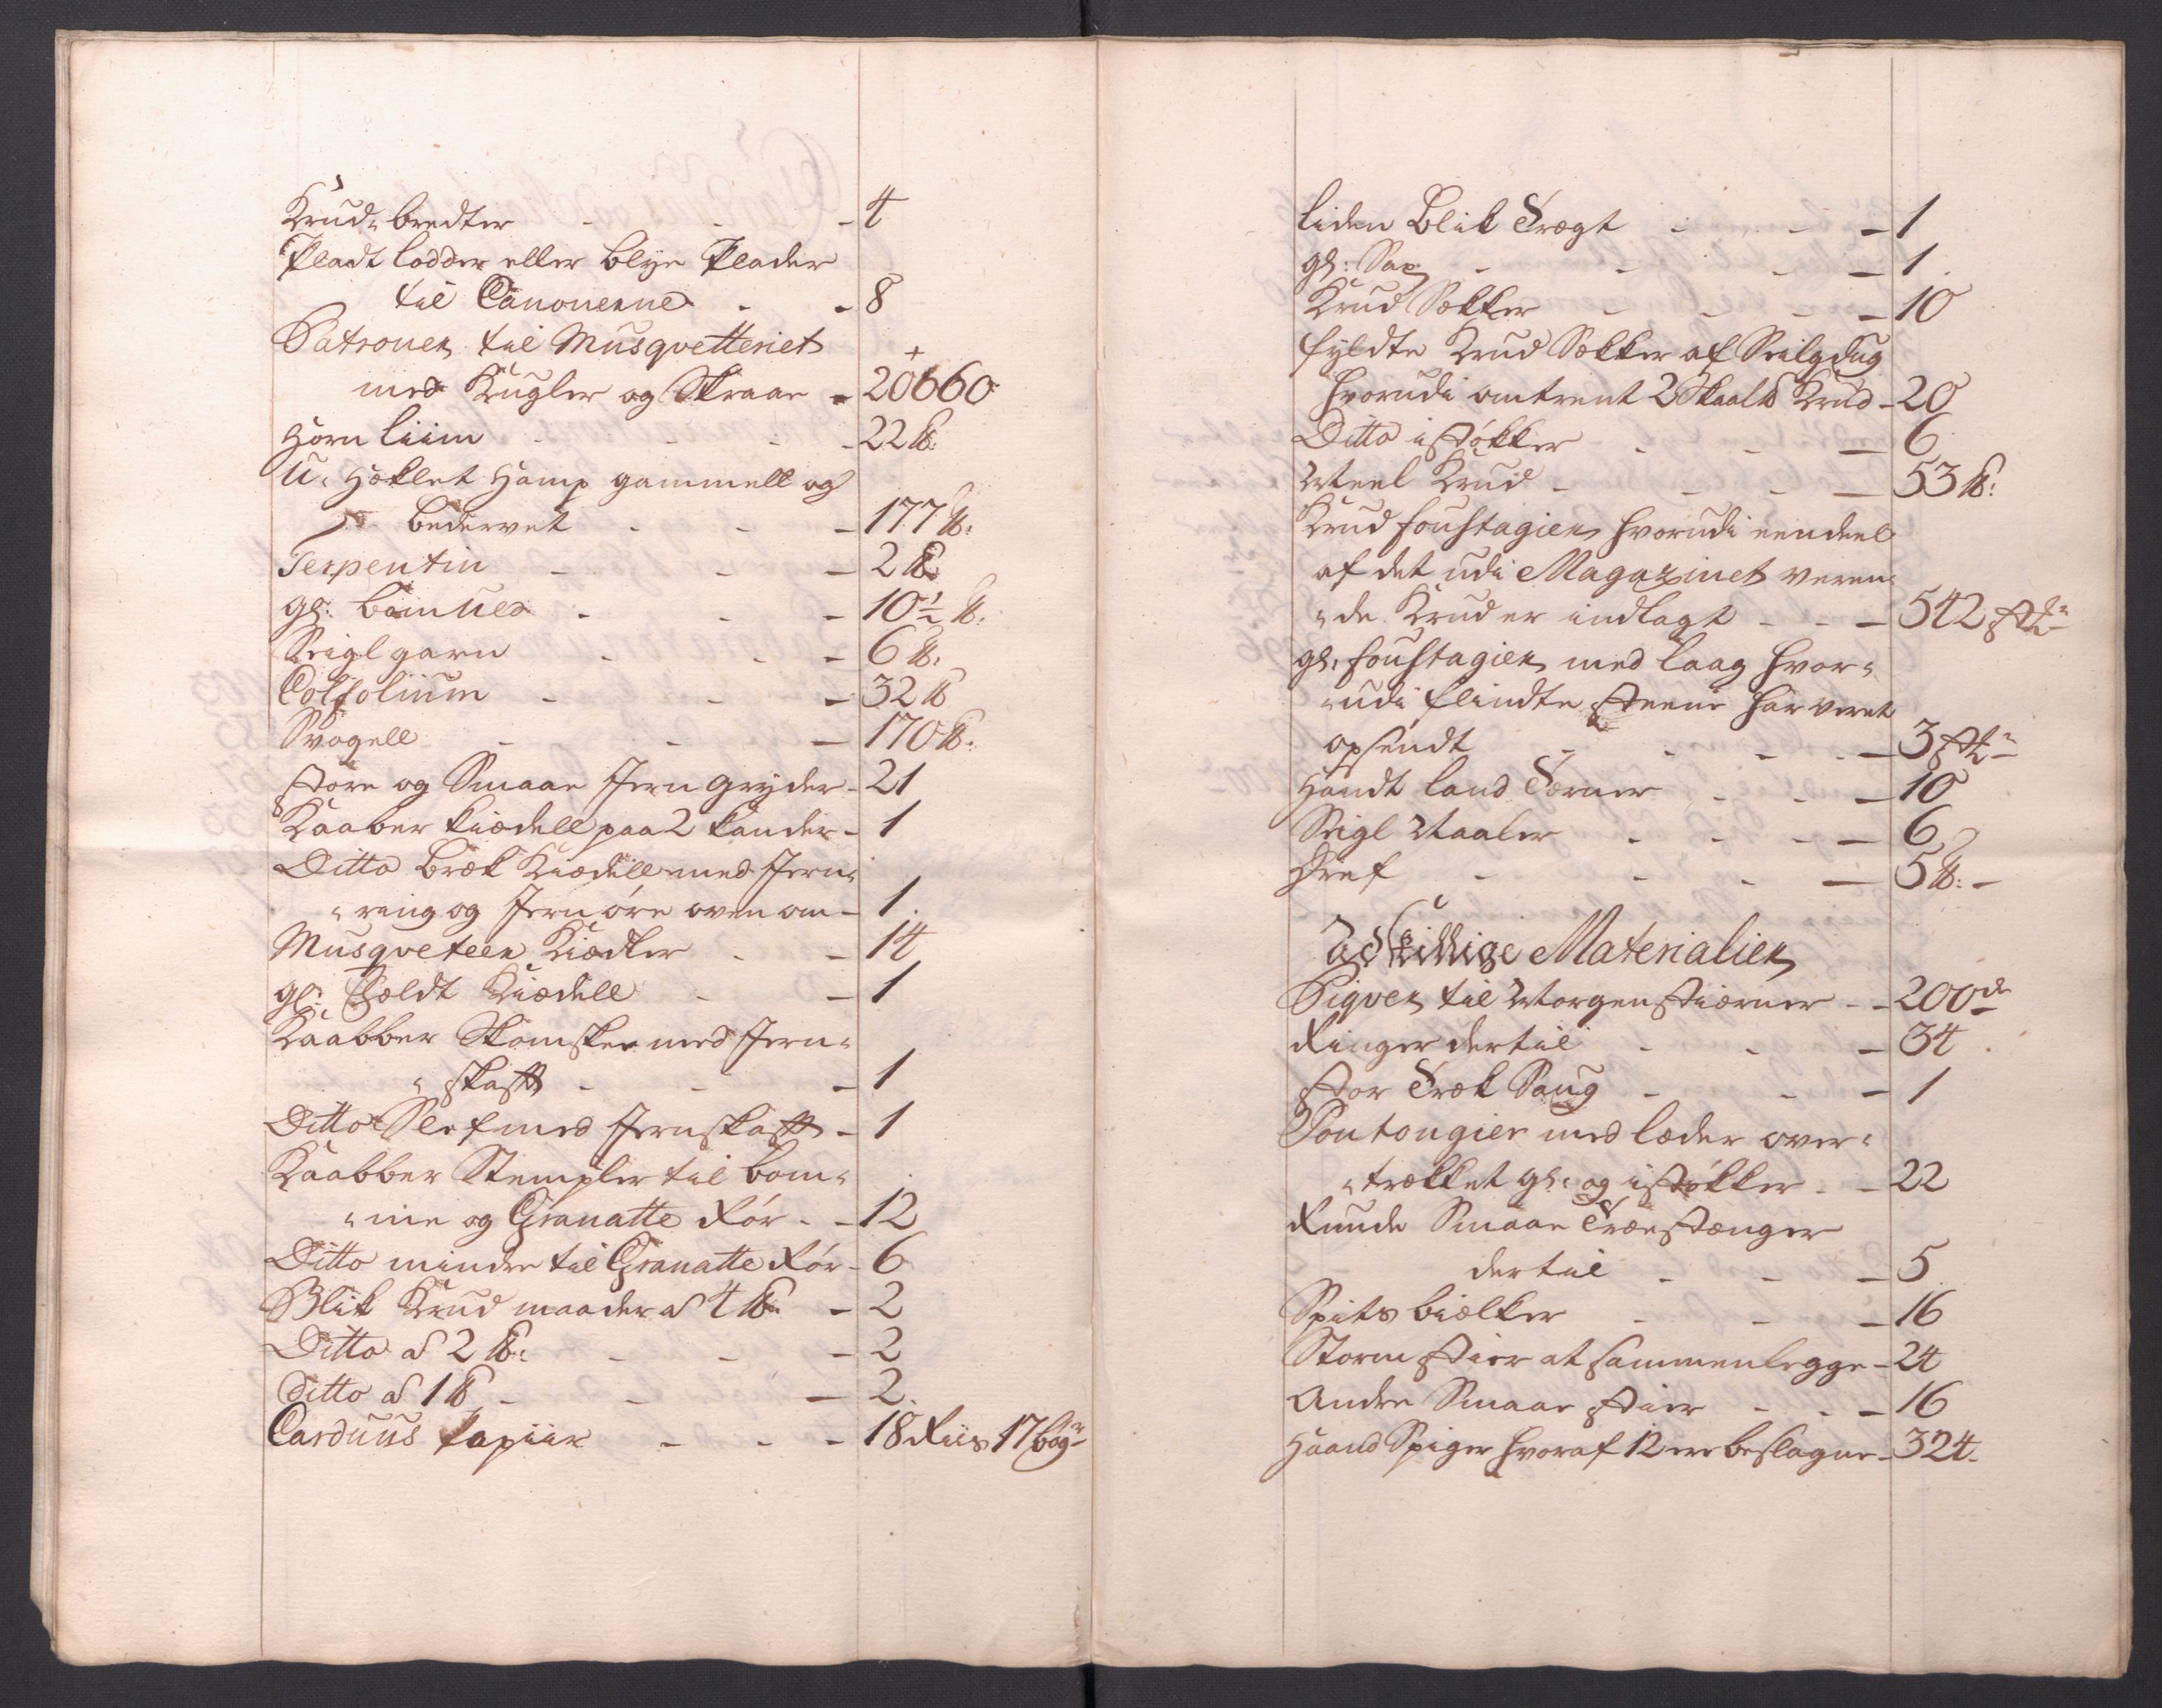 Krud bredter - - - 4
Pladt lodder eller Blye Plader
til Canonerne - - 8
Patroner til Musqvetteriet
med Kugler og Skraae - 20660
Horn Liim - - - 22 ℔:
U-Heklet Hamp gammell og
bedervet - - - 177 ℔:
Terpentin - - - 2 ℔
gl: Bomuld - - - 10½ ℔:
Seigl garn - - - 6 ℔:
Colfolium - - - 32 ℔
Svogell - - - 170 ℔:
store og Smaae Jern gryder - 21
Kaaber Kiædell paa 2 Kander - 1
Ditto Bræk Kiædell med Jern-
ring og Jern øre oven om - 1
Musqveteer Kiædler - - 14
gl: Kiædell - - 1
Kaabber Skomskee med Jern-
skafft - - - 1
Ditto Slef med Jernskafft - 1
Kaabber Stempler til Bom-
me og Granatte Rør - - 12
Ditto mindre til Granatte Rør - 6
Blik Krud maader a 4 ℔ - 2
Ditto a 2 ℔: - - - 2
Ditto a 1 ℔ - - - 2
Carduus Papiir - - - 18 Riis 17 bøgr
liden Blik Trægt - - - 1
gl: Sax - - - 1
Krud Sække - - - 10
fyldte Krud Sækker af Seilgdug
hvorudi omtrent 2 Skaal℔ Krud - 20
Ditto i støkker - - - 6
Meel Krud - - - 53 ℔:
Krud foustagier hvorudi een deel
af det udi Magazinet veren-
de Krud er indlagt - - - 542 stkr
gl: foustagier med laag hvor-
udi flindte steene har veret
opsendt - - - 3 stkr
Handt land Terner - - - 10
Seigl Naaler - - - 6
Dref - - - 5 ℔: -
Adskillige Materialier
Pigver til Morgen stierner - - 200de
Ringer dertil - - - 34
stor Træk Saug - - - 1
Pontongier med læder over-
trækket gl: og i støkker - - 22
Runde Smaae Træe stænger
dertil - - - 5
Spits biælker - - - 16
Storm stier at sammenlegge - 24
Andre Smaae stier - - - 16
Haand Spiger hvoraf 12 ere beslagne - 324